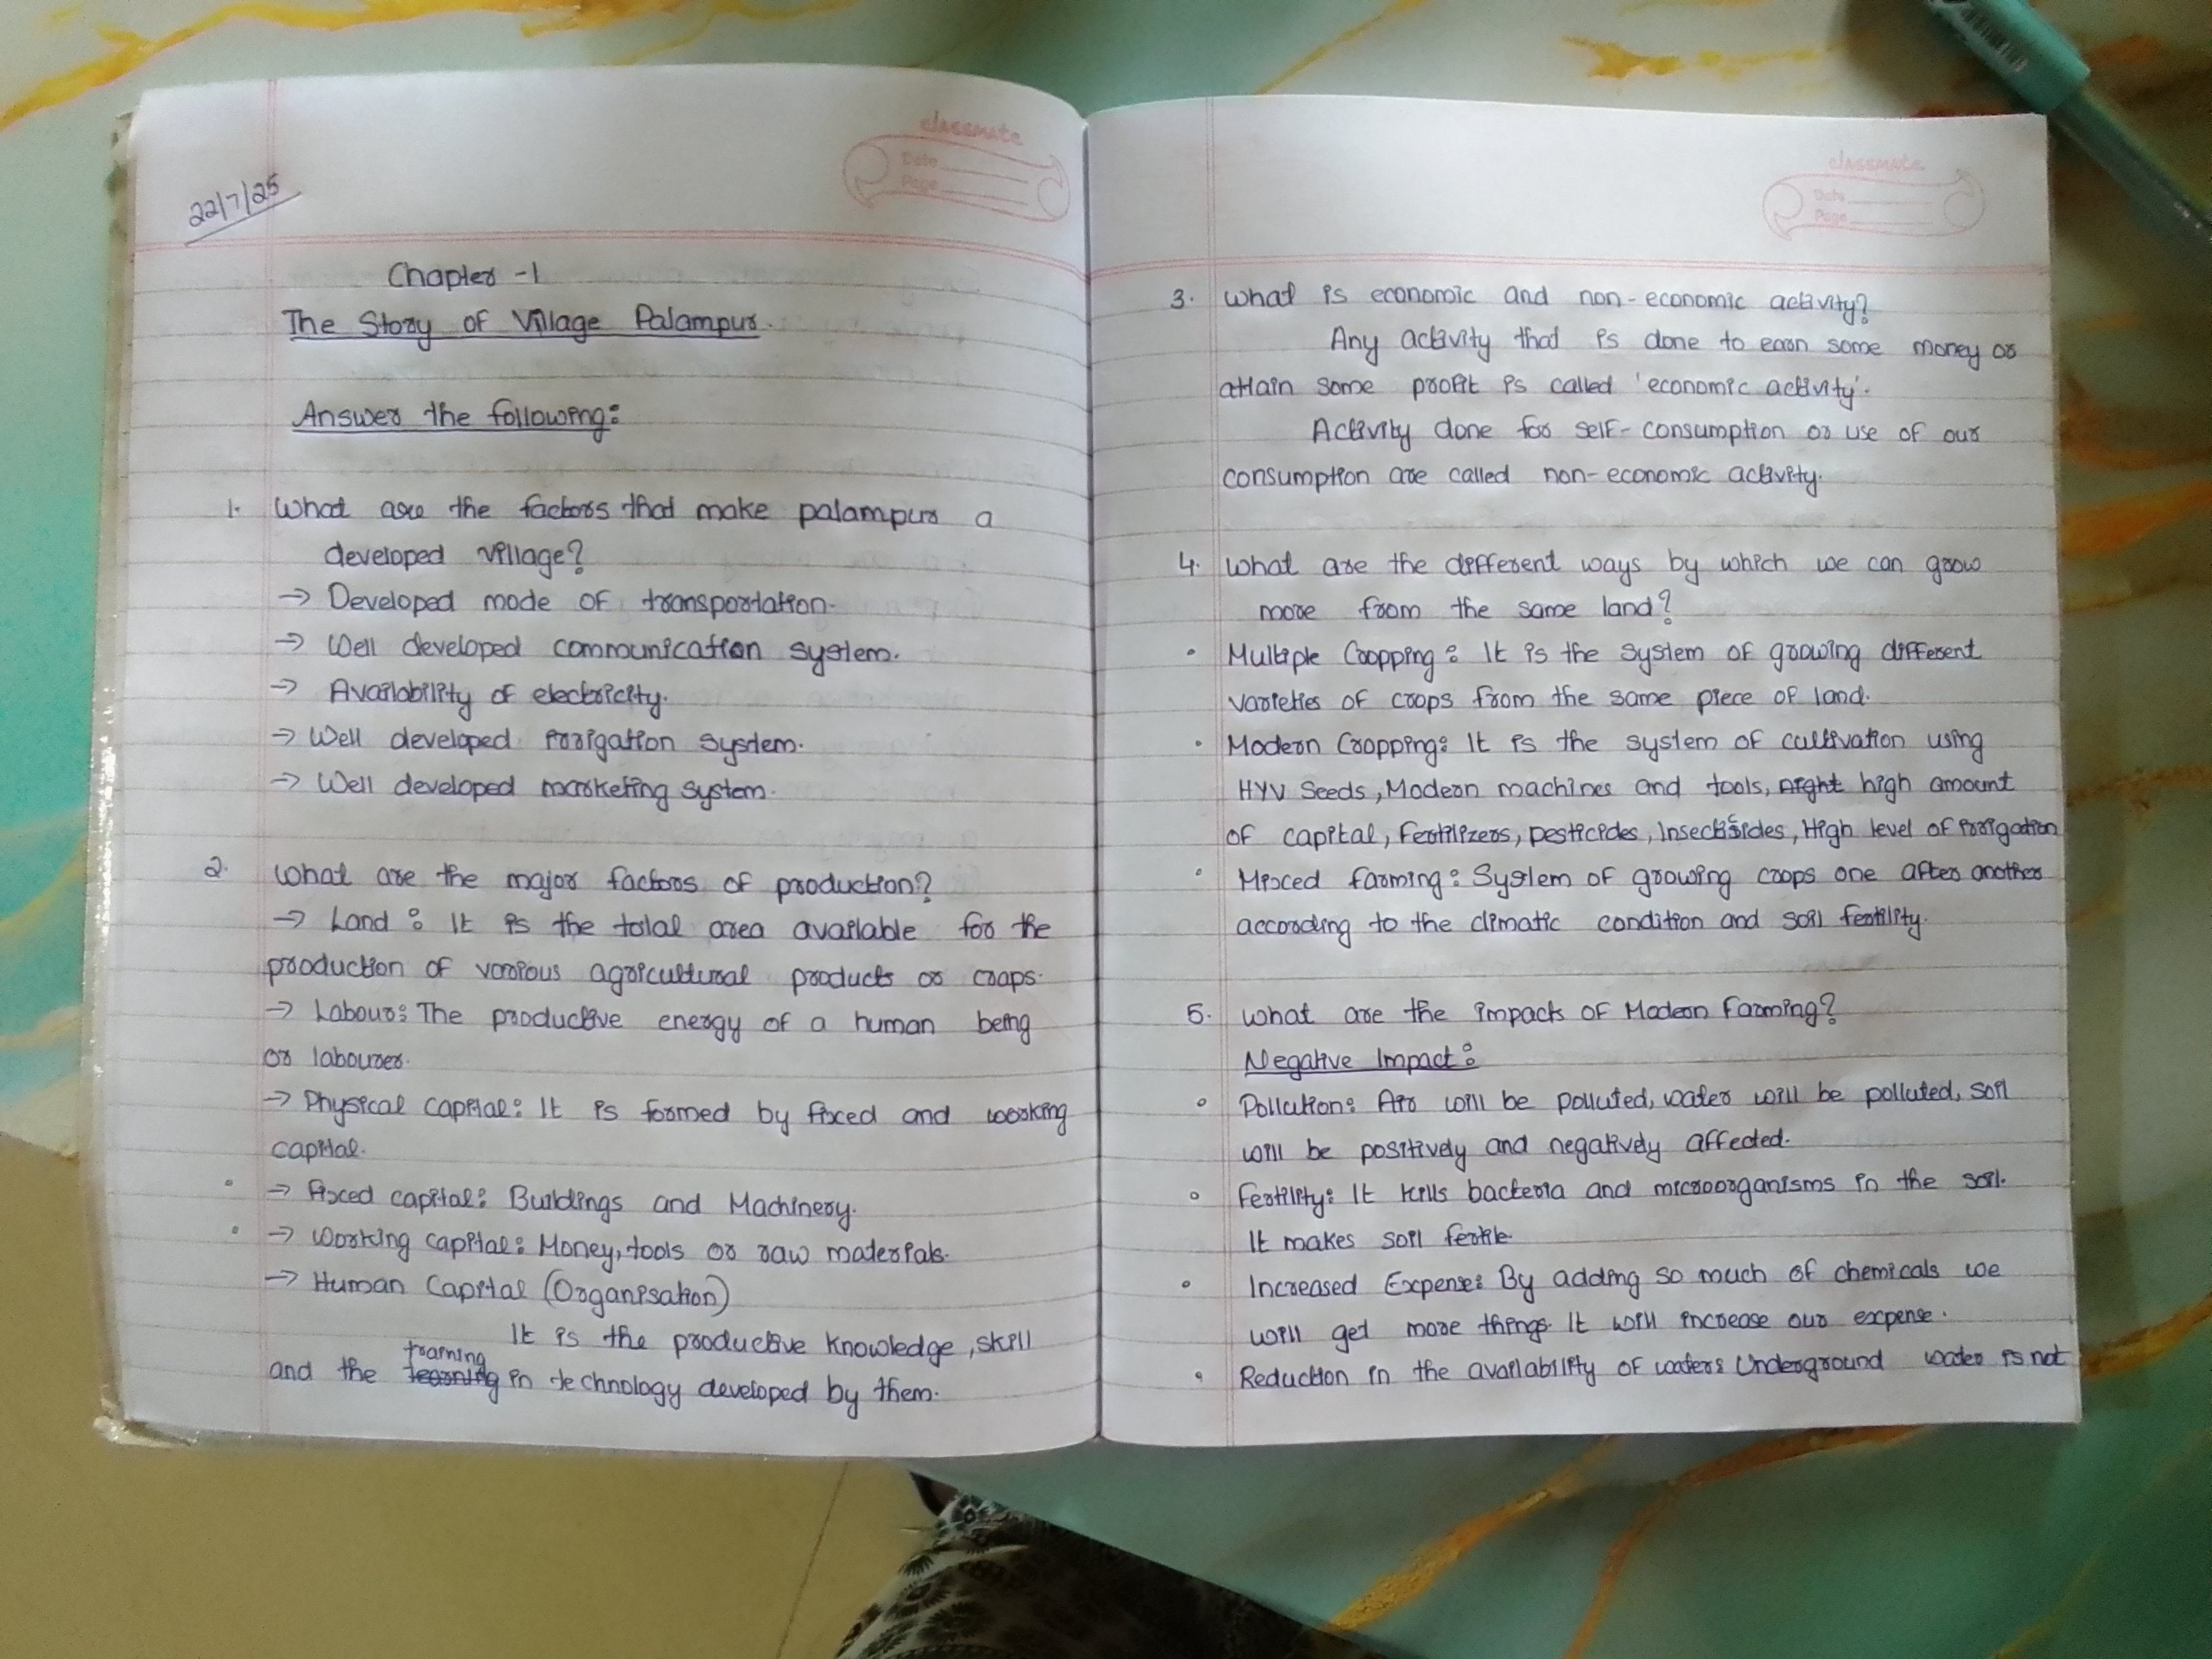 classmate
Date
Page
22/7/25
Chapter - 1
The Story of Village Palampur.
Answer the following:
1. What are the factors that make palampur a
developed village?
→ Developed mode of transportation.
→ Well developed communication system.
→ Availability of electricity.
→ Well developed irrigation system.
→ Well developed marketing system.
2. What are the major factors of production?
→ Land : It is the total area available for the
production of various agricultural products or crops.
→ Labour: The productive energy of a human being
or labourer.
→ Physical capital: It is formed by fixed and working
capital.
→ Fixed capital: Buildings and Machinery.
→ Working capital: Money, tools or raw materials.
→ Human Capital (Organisation)
It is the productive knowledge, skill
training
and the learning in technology developed by them.
classmate
Date
Page
3. What is economic and non-economic activity?
Any activity that is done to earn some money or
attain some profit is called 'economic activity'.
Activity done for self-consumption or use of our
consumption are called non-economic activity.
4. What are the different ways by which we can grow
more from the same land?
• Multiple Cropping: It is the system of growing different
varieties of crops from the same piece of land.
• Modern Cropping: It is the system of cultivation using
HYV Seeds, Modern machines and tools, high amount
of capital, Fertilizers, pesticides, Insectisides, High level of irrigation
• Mixed farming: System of growing crops one after another
according to the climatic condition and soil fertility.
5. What are the impacts of Modern Farming?
Negative Impact:
• Pollution: Air will be polluted, water will be polluted, soil
will be positively and negatively affected.
• Fertility: It kills bacteria and microorganisms in the soil.
It makes soil fertile
• Increased Expense: By adding so much of chemicals we
will get more things. It will increase our expense.
• Reduction in the availability of water: Underground water is not